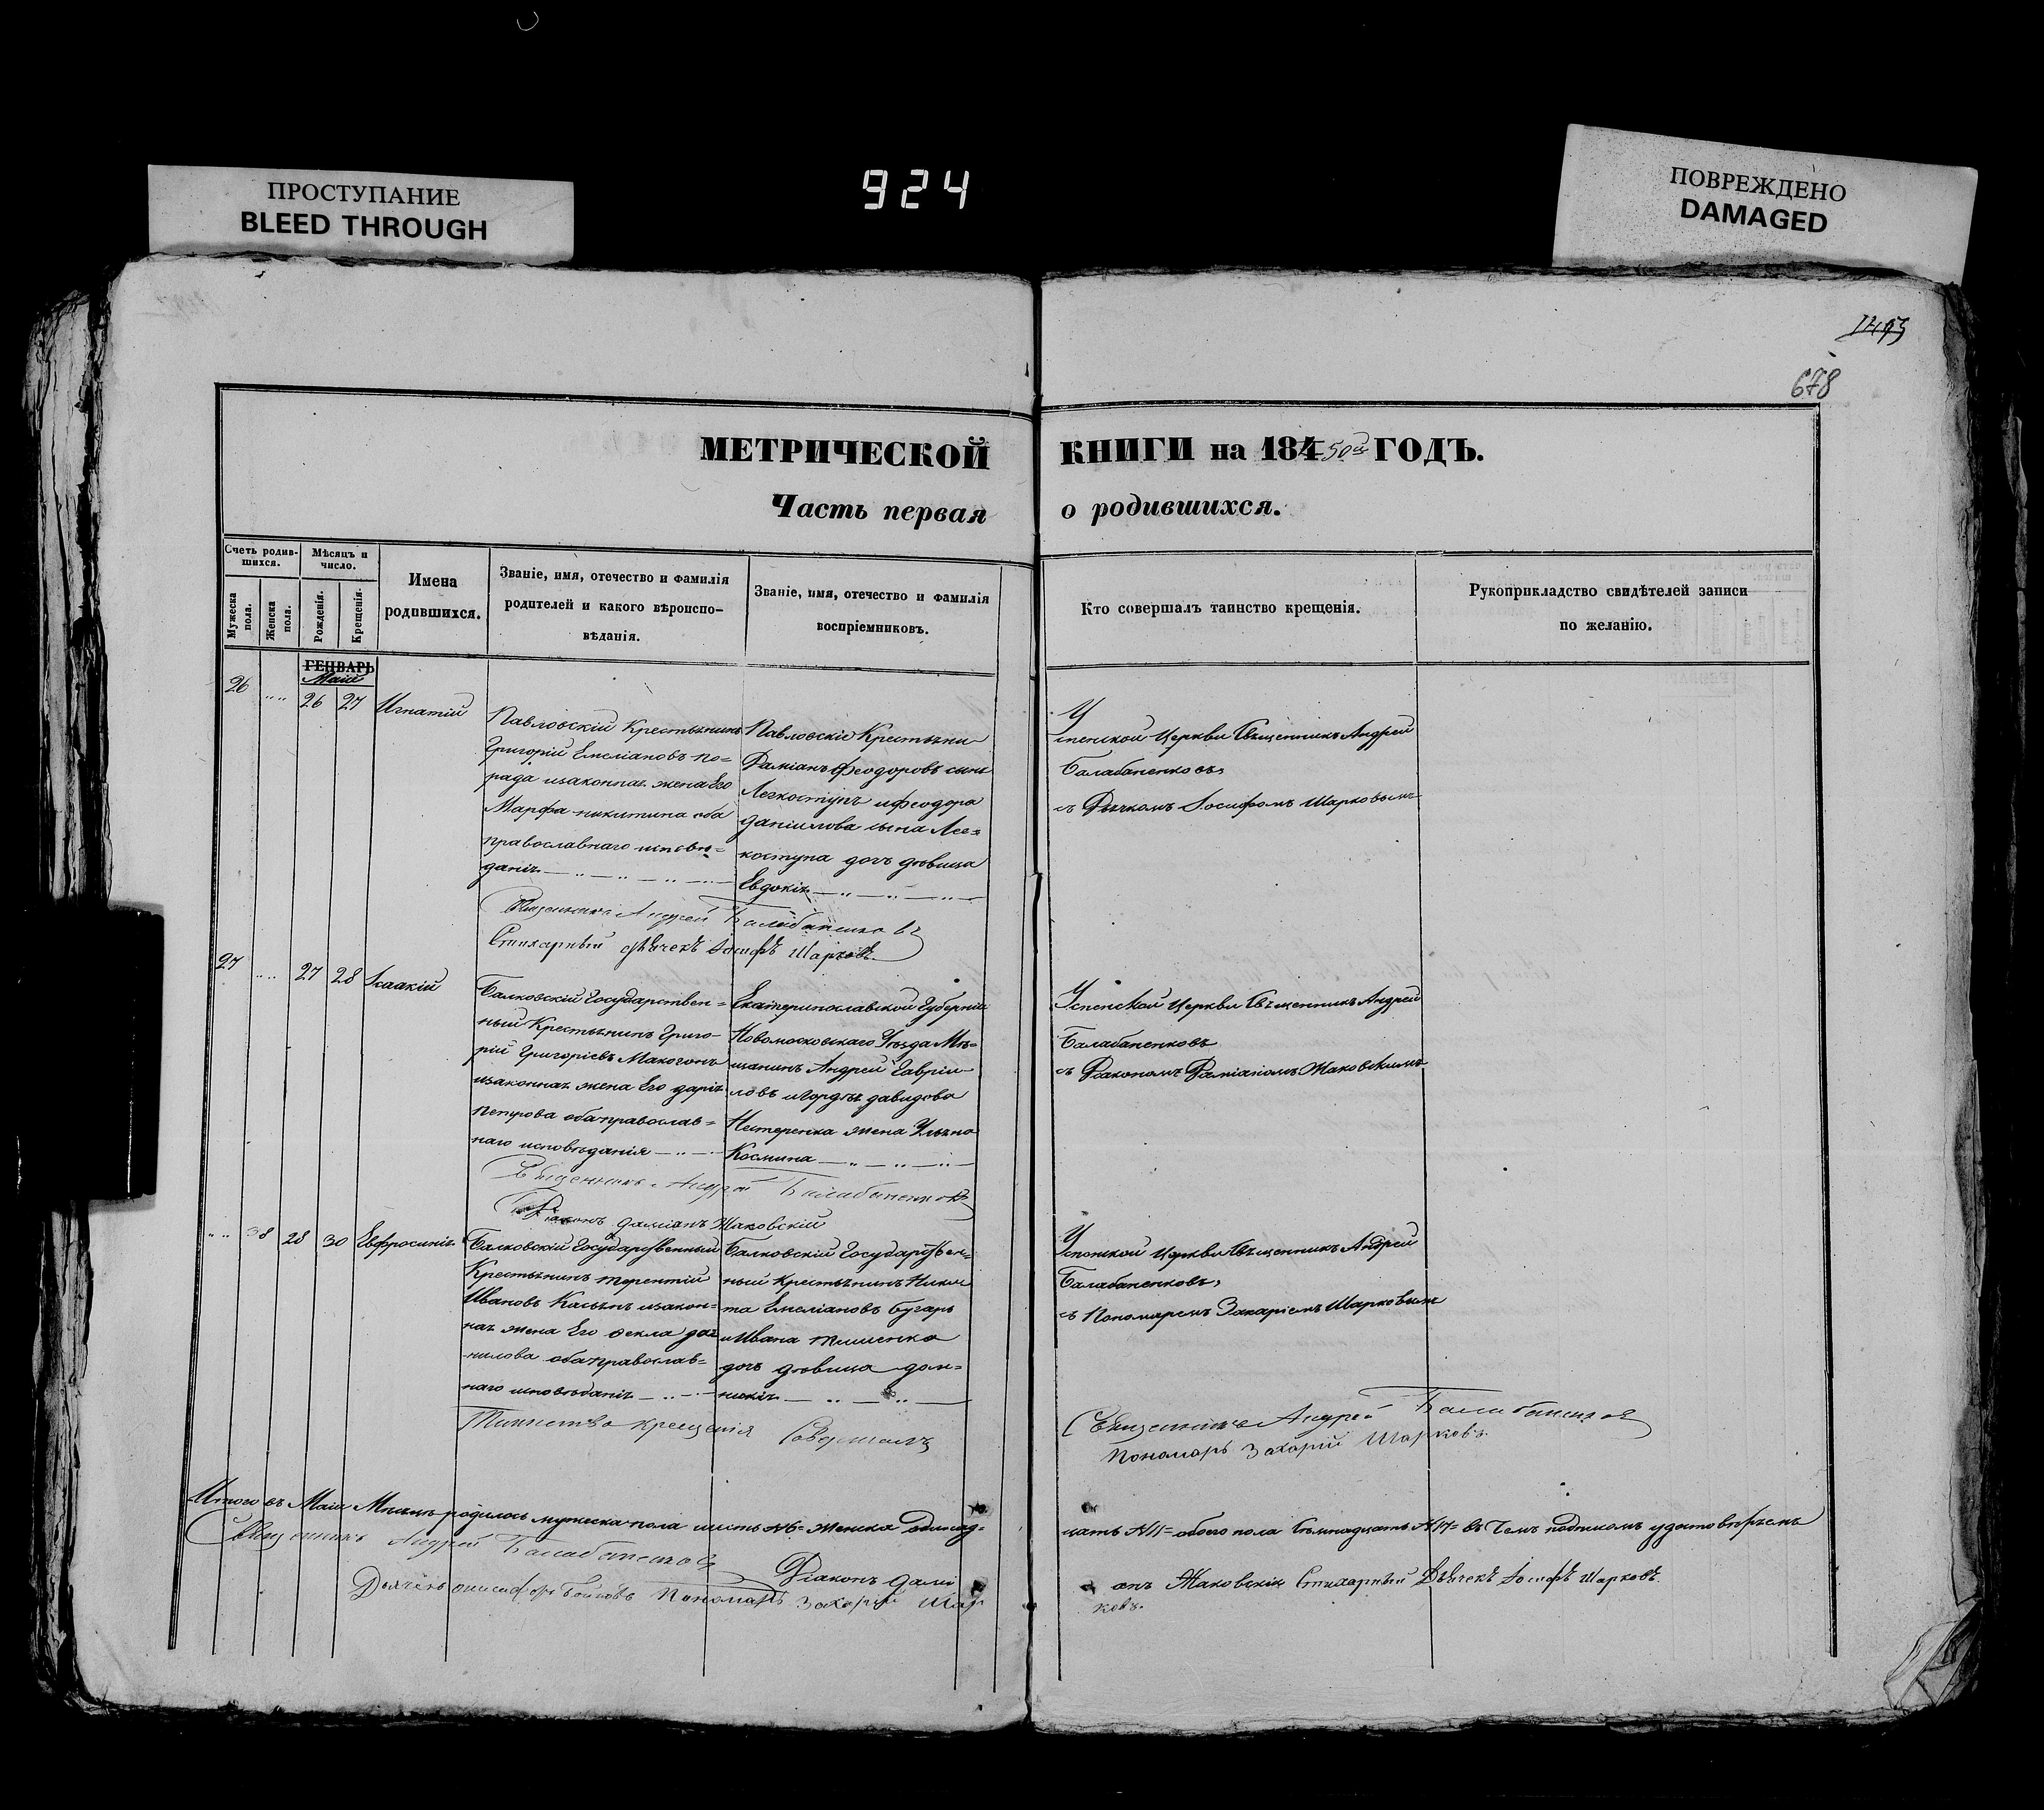 ПРОСТУПАНИЕ
BLEED THROUGH
924
ПОВРЕЖДЕНО
DAMAGED
1493
678
МЕТРИЧЕСКОЙ КНИГИ на 184 50й ГОДЪ.
Часть первая о родившихся.
Счетъ родив-
шихся.
Мужеска
пола.
Женска
пола.
Мѣсяцъ и
число.
Рожденія.
Крещенія.
Имена
родившихся.
Званіе, имя, отечество и фамилія
родителей и какого вѣроиспо-
вѣданія.
Званіе, имя, отечество и фамилія
воспріемниковъ.
Кто совершалъ таинство крещенія.
Рукоприкладство свидѣтелей записи
по желанію.
ГЕНВАРЬ
Маій
26 26 27 Игнатій
Павловскій Крестьянинъ
Григорій Емеліановъ по=
рада изаконная жена Его
Марфа никитина оба
православнаго исповѣ=
данія
Павловскіе Крестьяни
Даміанъ Феодоровъ сынъ
Легкоступъ иФеодора
даніилова сына Лег=
коступа дочь дѣвица
Евдокія
Успенской Церкви Священникъ Андрей
Балабаненковъ,
съ Дьячкомъ Іосифомъ Шарковымъ
Священникъ Андрей Балабаненковъ
Стихарный дьячекъ Іосифъ Шарковъ
27 27 28 Ісаакій
Балковскій Государствен=
ный Крестьянинъ Григо-
рій Григоріевъ Макогонъ
изаконная жена Его дарія
Петрова оба православ=
наго исповѣданія
Екатеринославской Губерніи
Новомосковскаго Уѣзда Мѣ=
щанинъ Андрей Гаврии-
ловъ иГордѣя давидова
Нестеренка жена Ульяна
Космина
Успенской Церкви Священникъ Андрей
Балабаненковъ
съ Діакономъ Даміаномъ Жаковскимъ
Священникъ Андрей Балабаненковъ
Діаконъ даміанъ Жаковскій
38 28 30 Евфросинія
Балковскій Государственный
Крестьянинъ терентій
Ивановъ Касьянъ изакон=
ная жена Его Фекла да
нилова оба православ=
наго исповѣданія
Балковскій Государствен=
ный крестьянинъ Ники
та Емеліановъ Бугаръ
иИвана
дочь дѣвица дом=
никія
Успенской Церкви Священникъ Андрей
Балабаненковъ,
съ Пономаремъ Захаріемъ Шарковымъ
Таинство крещенія Совершалъ
Священникъ Андрей Балабаненковъ
Пономарь Захарій Шарковъ
Итого въ Маій Мѣсяцѣ родилось мужеска пола шесть №6= женска одинад=
цать №11= обоего пола Семнадцать №17= въ Чемъ подписомъ удостовѣряемъ
Священникъ Андрей Балабаненковъ
Діаконъ Дамі
анъ Жаковскій Стихарный Дьячекъ Іосифъ Шарковъ.
Дьячекъ Пономарь Захарій Шар
ковъ.